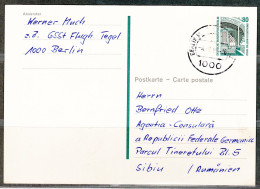 Absender
Werner Huch
z.Z. GSSt Flugh. Tegel
1000 Berlin
80
1000
Postkarte - Carte postale
Herrn
Bernfried Otte
Agentia - Consulară
a Republicii Federale Germania
Parcul Tineretului Bl. 5
Sibiu
(Rumänien